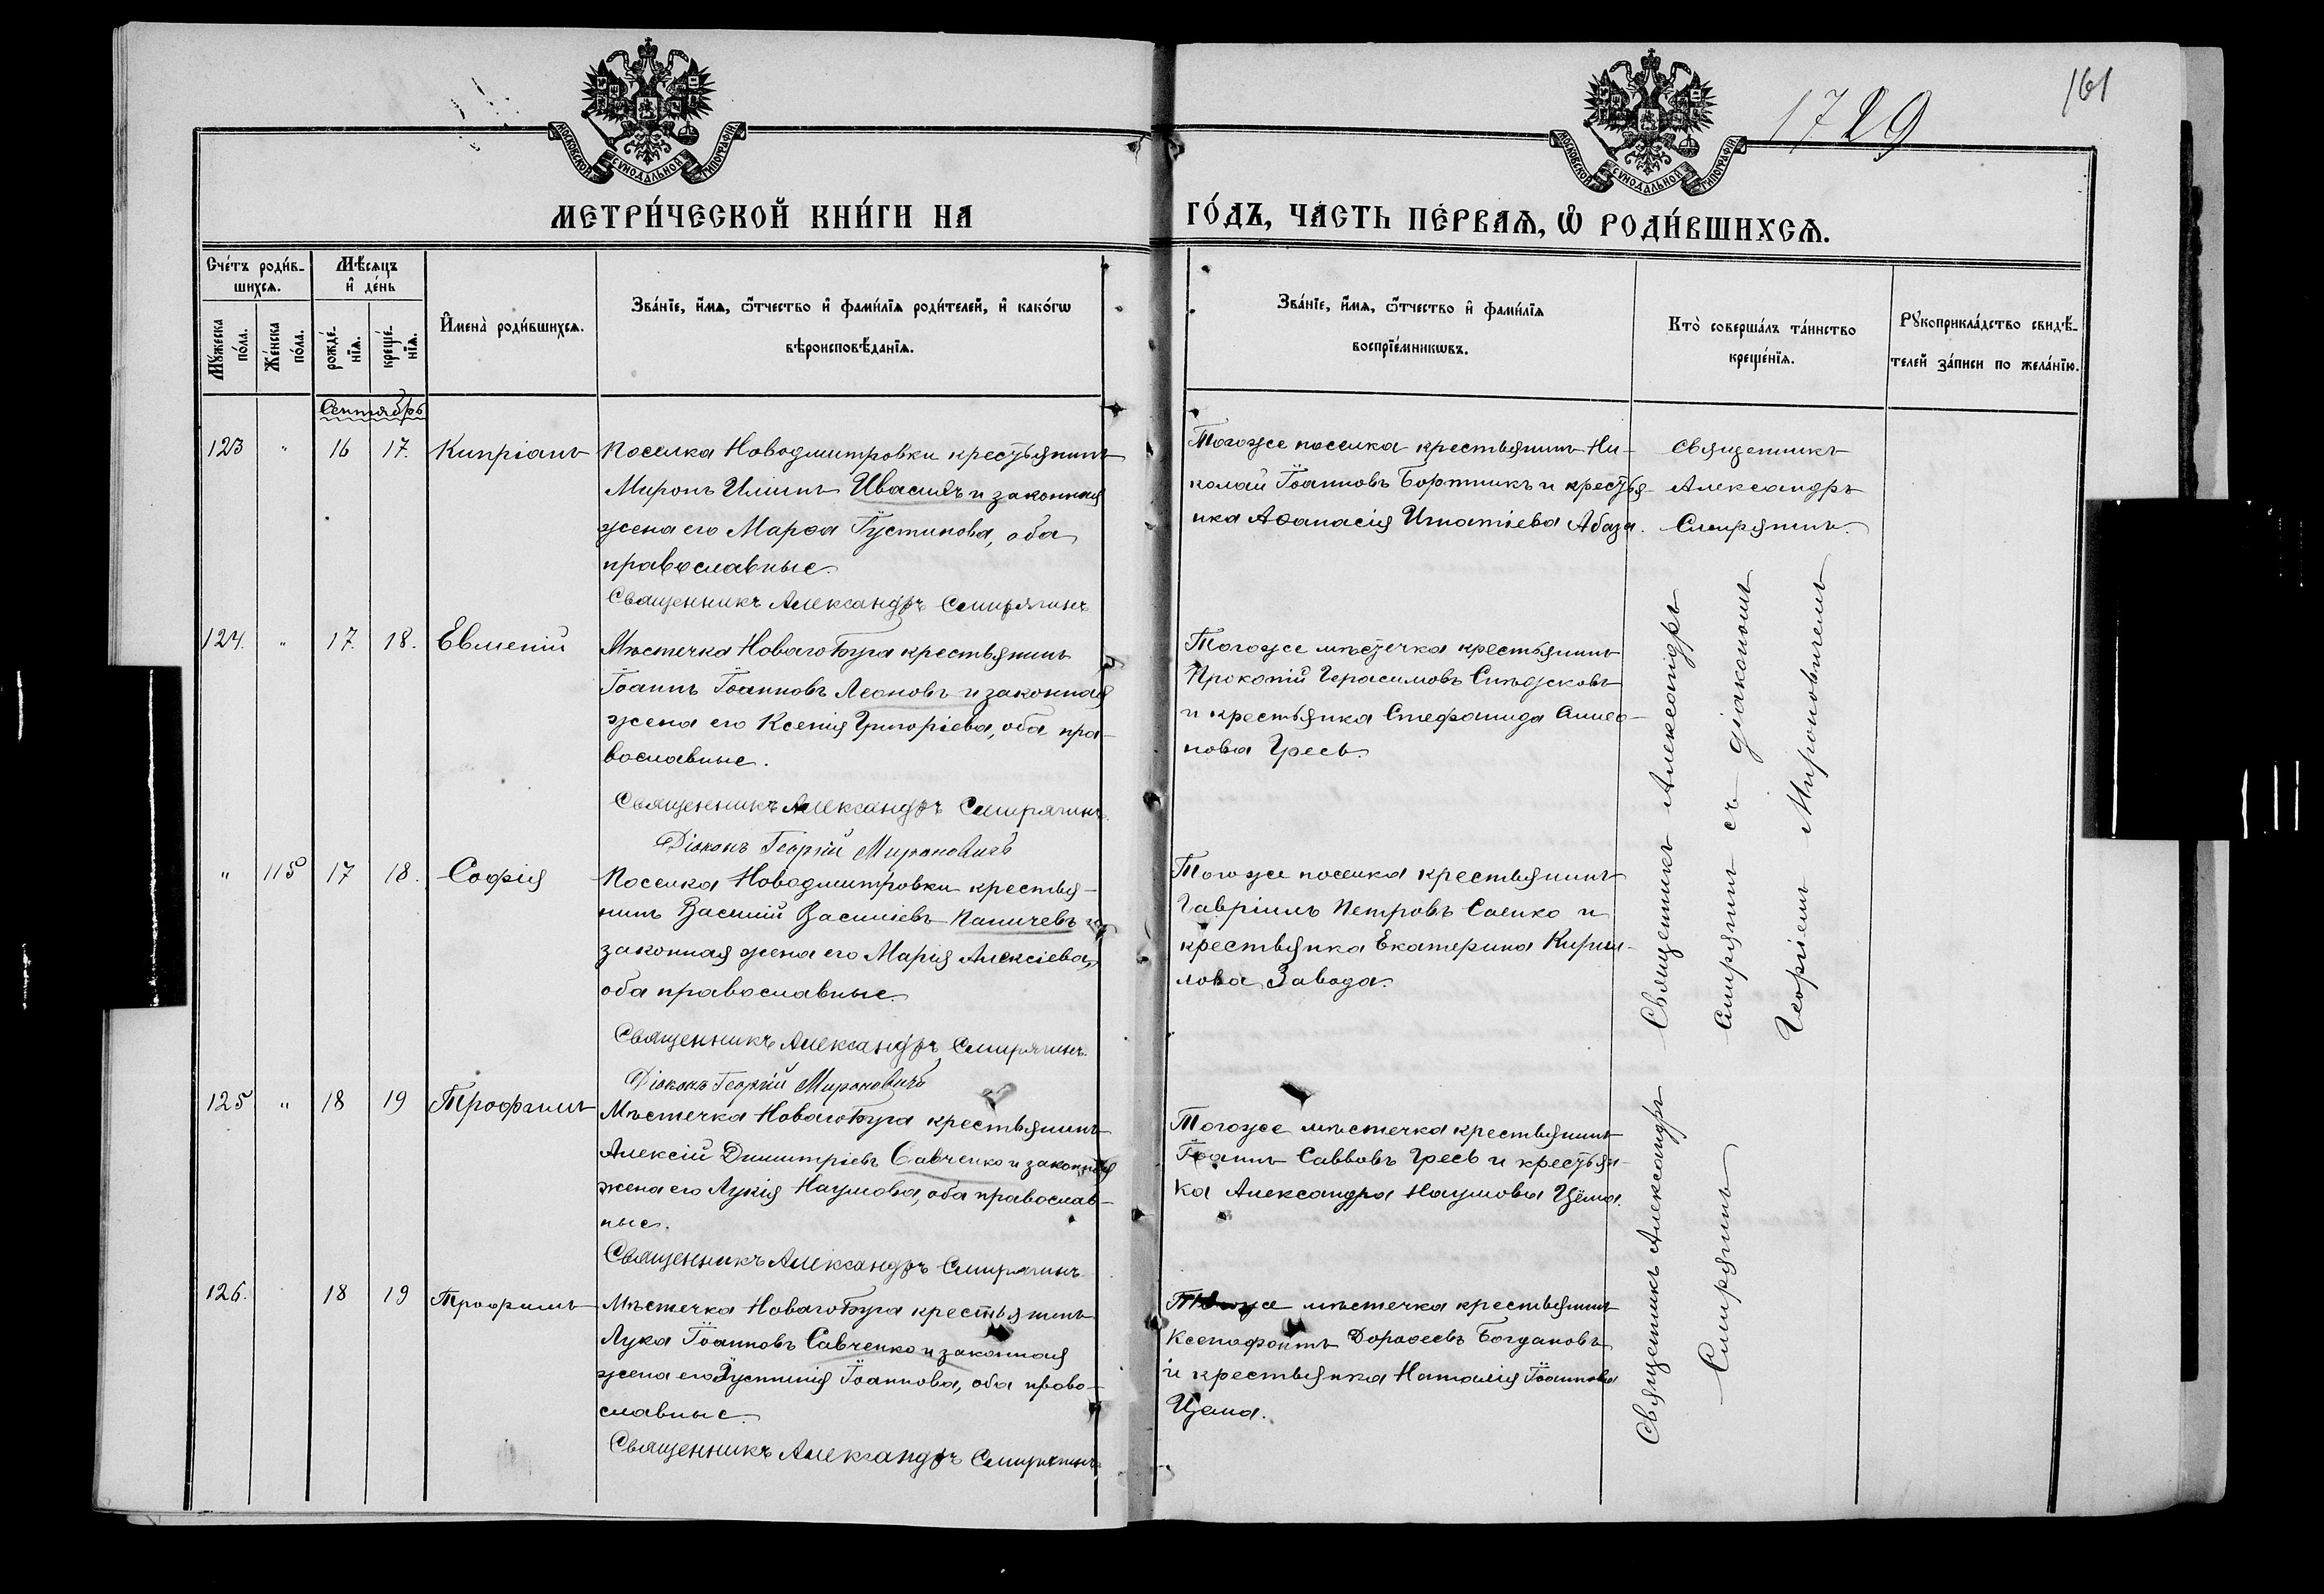 1729
161
МОСКОВСКОЙ СѴНОДАЛЬНОЙ ТИПОГРАФІИ
МОСКОВСКОЙ СѴНОДАЛЬНОЙ ТИПОГРАФІИ
МЕТРИ́ЧЕСКОЙ КНИ́ГИ НА ГО́ДЪ, ЧА́СТЬ ПЕ́РВАѦ, Ѽ РОДИ́ВШИХСѦ.
Сче́тъ роди́в-
шихсѧ.
Мꙋ́жеска
по́ла.
Же́нска
по́ла.
Мѣ́сѧцъ
и҆ де́нь
рожде́-
нїѧ.
креще́-
нїѧ.
И҆мена̀ роди́вшихсѧ.
Зва́нїе, и҆́мѧ, ѻ҆́тчество и҆ фами́лїѧ роди́телей, и҆ како́гѡ
вѣроисповѣ́данїѧ.
Зва́нїе, и҆́мѧ, ѻ҆́тчество и҆ фами́лїѧ
воспрїе́мникѡвъ.
Кто̀ соверша́лъ та́инство
креще́нїѧ.
Рꙋкоприкла́дство свидѣ́-
телей за́писи по жела́нїю.
Сентябрь
123 " 16 17. Кипріанъ
Поселка Новодмитровки крестьянинъ
Миронъ Иліинъ Ивасивъ и законная
жена его Марѳа Іустинова, оба
православные.
Священникъ Александръ Смирягинъ
Тогоже поселка крестьянинъ Ни-
колай Іоанновъ Бортникъ и крестья-
нка Аѳанасія Игнатіева Абаза.
Священникъ
Александръ
Смирягинъ.
124. " 17. 18. Евменій
Мѣстечка Новаго Буга крестьянинъ
Іоаннъ Іоанновъ Леоновъ и законная
жена его Ксенія Григоріева, оба пра-
вославные.
Священникъ Александръ Смирягинъ.
Діаконъ Георгій Мироновичъ
Тогоже мѣстечка крестьянинъ
Прокопій Герасимовъ
и крестьянка Стефанида Симео-
нова Гресь.
" 115 17 18. Софія
Поселка Новодмитровки крестья-
нинъ Василій Василіевъ Паничевъ и
законная жена его Марія Алексіева,
оба православные.
Священникъ Александръ Смирягинъ.
Діаконъ Георгій Мироновичъ
Тогоже поселка крестьянинъ
Гавріилъ Петровъ Саенко и
крестьянка Екатерина Кирил-
лова Завода.
Священникъ Александръ
Смирягинъ съ діакономъ
Георгіемъ Мироновичемъ
125 " 18 19 Трофимъ
Мѣстечка Новаго Буга крестьянинъ
Алексій Димитріевъ Савченко и законная
жена его Лукія Наумова, оба православ-
ные.
Священникъ Александръ Смирягинъ
Тогоже мѣстечка крестьянинъ
Іоаннъ Саввовъ Гресь и крестьян-
ка Александра Наумова Цёма.
126. 18 19 Трофимъ
Мѣстечка Новаго Буга крестьянинъ
Лука Іоанновъ Савченко и законная
жена его Іустинія Іоаннова, оба право-
славные.
Священникъ Александръ Смирягинъ
Тогоже мѣстечка крестьянинъ
Ксенофонтъ Дороѳеевъ Богдановъ
и крестьянка Наталія Іоаннова
Цема.
Священникъ Александръ
Смирягинъ